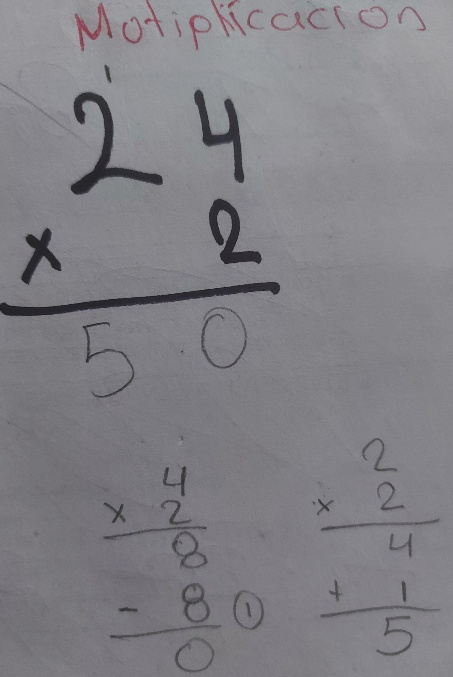 Motiplicacion
1
2 4
x 2
5 0
4
x 2
8
- 8 ①
0
2
x 2
4
+ 1
5